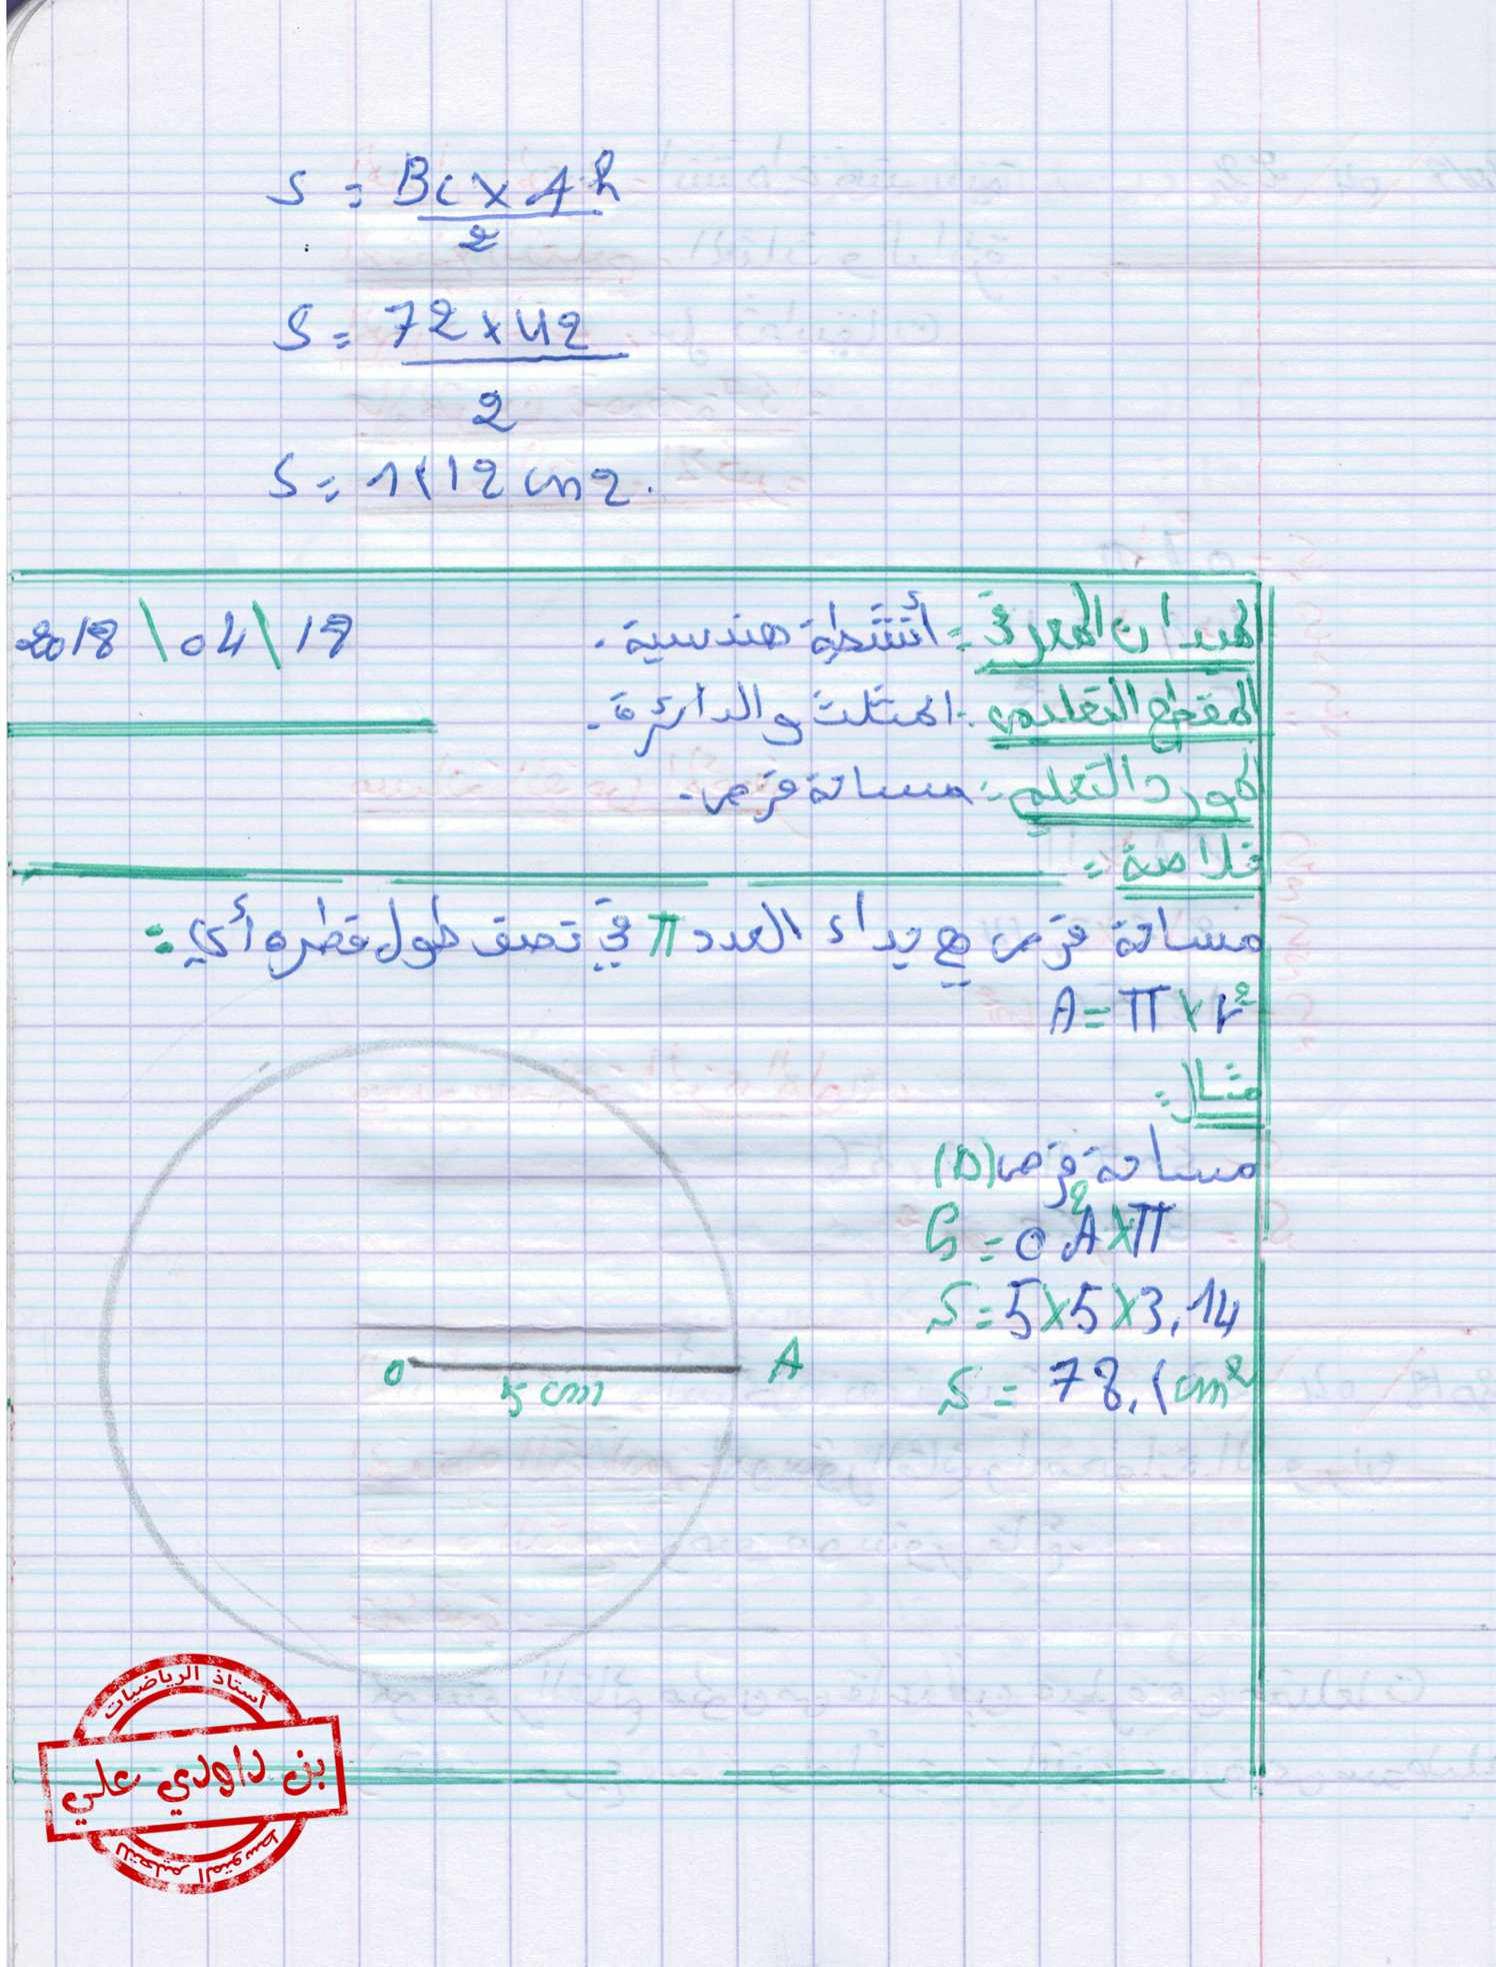 S = BC × Ah
2
S = 72 × 42
2
S = 1512 cm2.
الميدان المعرفي : أنشطة هندسية . 2018 \ 04 \ 18
المقطع التعليمي : المثلث والدائرة .
المورد التعلمي : مساحة قرص .
خلاصة :
مساحة قرص هي جداء العدد π في نصف طول قطره أي :
A = π × r²
مثال :
مساحة قرص (D)
S = OA² × π
S = 5 × 5 × 3,14
S = 78,5 cm²
O 5 cm A
أستاذ الرياضيات
بن داودي علي
للتعليم المتوسط